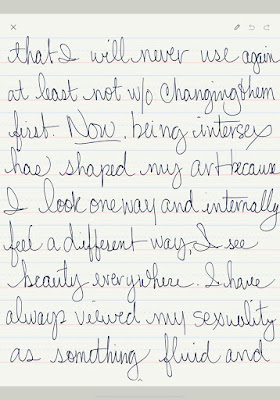 that I will never use again
at least not w/o changing them
first. Now, being intersex
has shaped my art because
I look one way and internally
feel a different way, I see
beauty everywhere. I have
always viewed my sexuality
as something fluid and